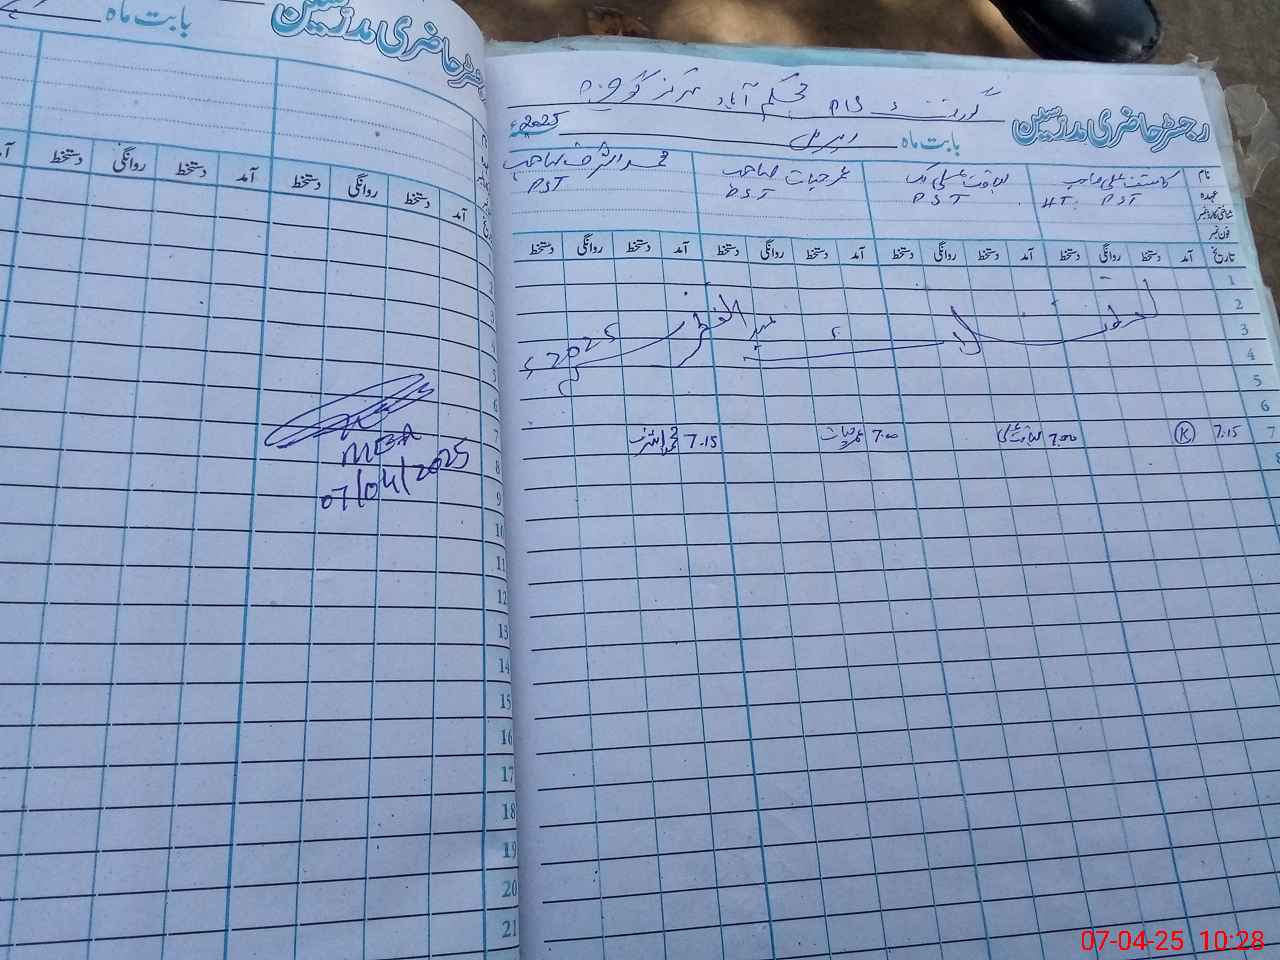 رجسٹر حاضری مدرسین
بابت ماہ
آمد دستخط روانگی دستخط آمد دستخط روانگی دستخط
6
7
8
9
10
11
12
13
14
15
16
17
18
19
20
21
MEA
07/04/2025
رجسٹر حاضری مدرسین گورنمنٹ P/S محکم آباد مرکز
بابت ماہ اپریل 2025ء
نام
عہدہ HT. PST PST PST PST
شناختی کارڈ نمبر
فون نمبر
عمر حیات صاحب
محمد اشرف صاحب
تاریخ آمد دستخط روانگی دستخط آمد دستخط روانگی دستخط آمد دستخط روانگی دستخط آمد دستخط روانگی دستخط
1
2
3
4
تعطیلات عید الفطر 2025ء
5
6
7 7.15 K 7.00 لیاقت علی 7.00 عمر حیات 7.15 محمد اشرف
8
07-04-25 10:28